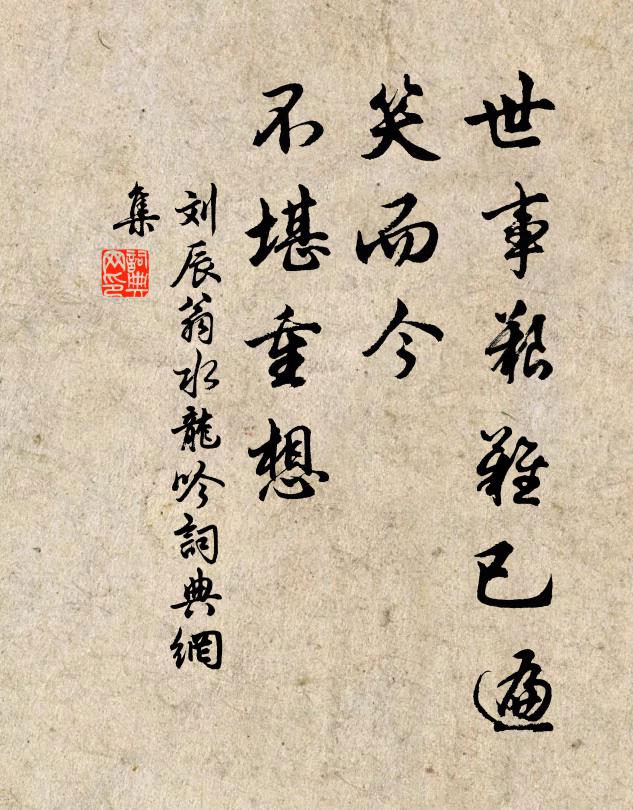 世事艱難已遍
笑而今
不堪重想
刘辰翁水龍吟詞典網
集
詞典
网印